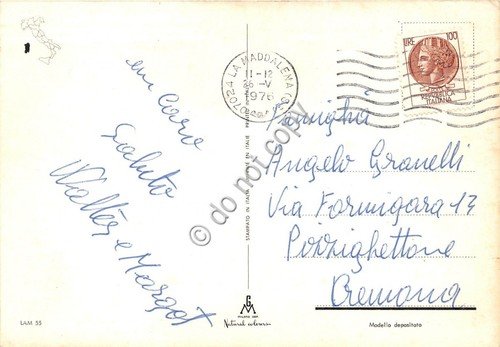 un caro
saluto
Walter e Margot
07024 LA MADDALENA
11-12
26-V
1976
LIRE 100
ITALIANA
Famiglia
Angelo Granelli
Via Formigara 13
Pizzighettone
Cremona
STAMPATO IN ITALIA
do not copy
LAM 55
GM
Natural colorcrom
Modello depositato